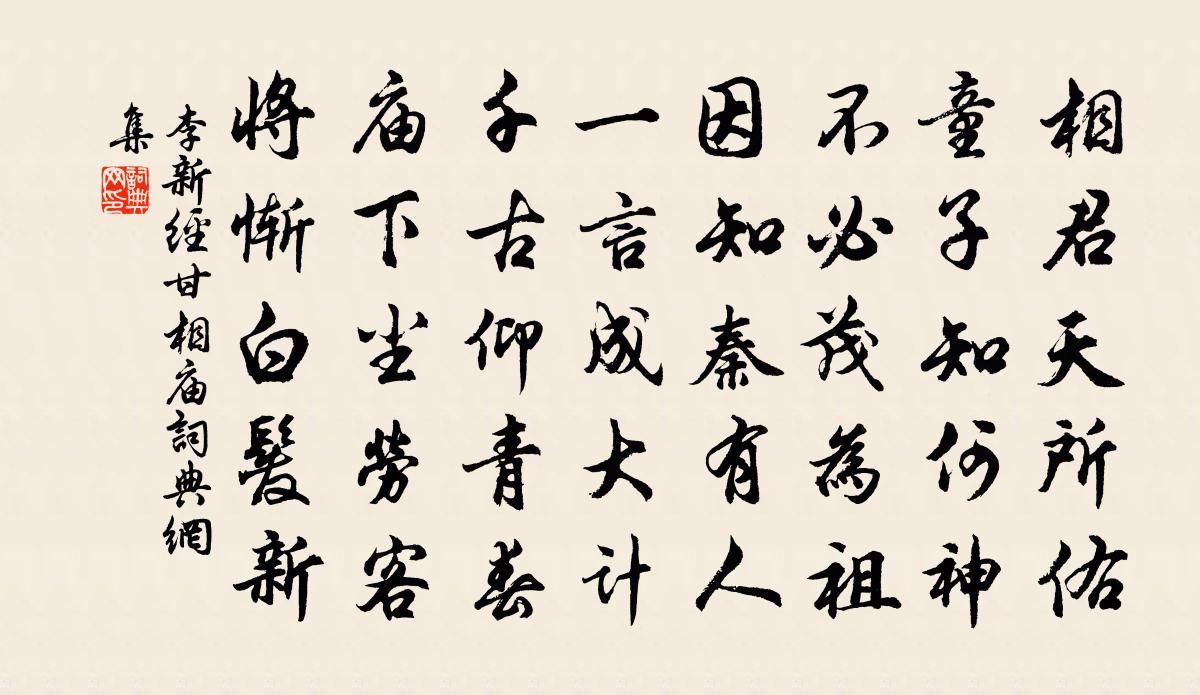 相君天所佑
童子知何神
不必茂為祖
因知秦有人
一言成大计
千古仰青春
庙下尘劳客
将惭白髮新
李新經甘相庙詞典網
集
詞典
网印